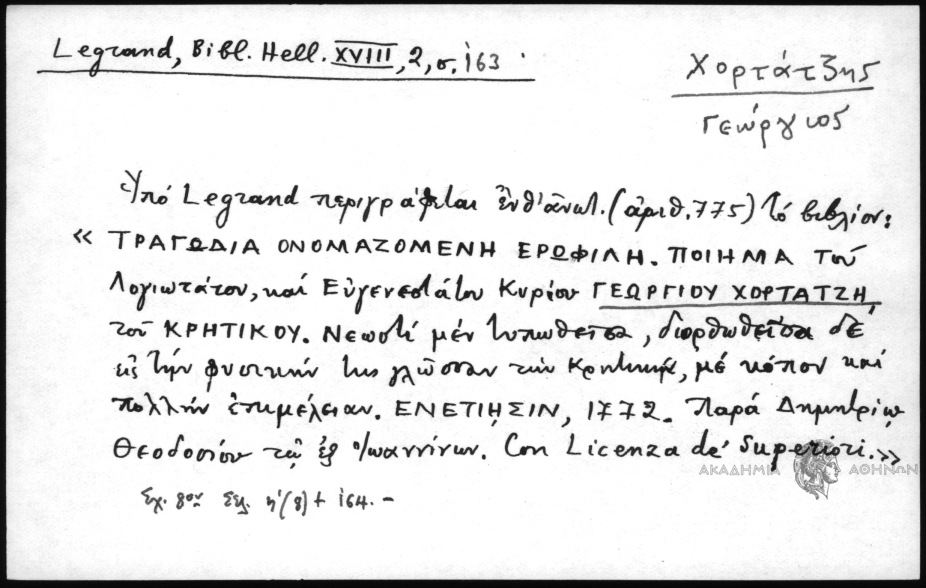 Legrand, Bibl. Hell. XVIII, 2, σ. 163
Χορτάτζης
Γεώργιος
Ὑπό Legrand περιγράφεται ἐνθ' ἀνωτ. (ἀριθ. 775) τό βιβλίον:
« ΤΡΑΓΩΔΙΑ ΟΝΟΜΑΖΟΜΕΝΗ ΕΡΩΦΙΛΗ. ΠΟΙΗΜΑ τοῦ
Λογιωτάτου, καί Εὐγενεστάτου Κυρίου ΓΕΩΡΓΙΟΥ ΧΟΡΤΑΤΖΗ,
τοῦ ΚΡΗΤΙΚΟΥ. Νεωστί μέν τυπωθεῖσα, διορθωθεῖσα δέ
εἰς τήν φυσικήν της γλῶσσαν τήν Κρητικήν, μέ κόπον καί
πολλήν ἐπιμέλειαν. ΕΝΕΤΙΗΣΙΝ, 1772. Παρά Δημητρίῳ
Θεοδοσίου τῷ ἐξ Ἰωαννίνων. Con Licenza de' Superiori.»
ΑΚΑΔΗΜΙΑ ΑΘΗΝΩΝ
Σχ. 8ον Σελ. η'(8) + 164. -